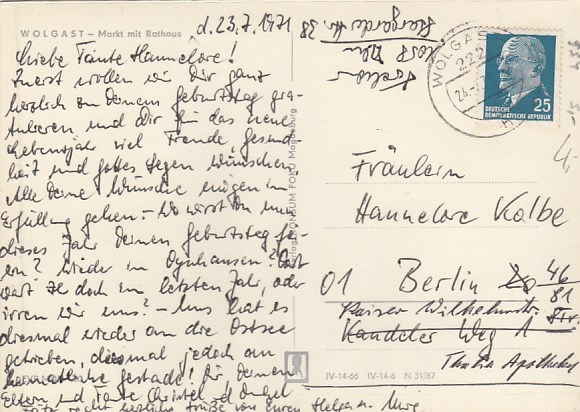 WOLGAST – Markt mit Rathaus
d. 23.7.1971
Liebe Tante Hannelore!
Zuerst wollen wir Dir ganz
herzlich zu Deinem Geburtstag gra-
tulieren und Dir für das neue
Lebensjahr viel Freude, Gesund-
heit und Gottes Segen wünschen.
Alle Deine Wünsche mögen in
Erfüllung gehen. – Wo wirst Du nun
dieses Jahr Deinen Geburtstag fei-
ern? Wieder in Oynhausen? Dort
warst Du doch im letzten Jahr, oder
irren wir uns? – Uns hat es
diesmal wieder an die Ostsee
getrieben, diesmal jedoch an
heimatliche Gestade! Dir, Deinen
Eltern und Tante Christel und Onkel
recht herzliche Grüße von Euren Helga u.
KONSUM FOTO Magdeburg
WOLGAST
222
24.-7
25
DEUTSCHE
DEMOKRATISCHE REPUBLIK
Fräulein
Hannelore Kolbe
01 Berlin 20 46
Kaiser Wilhelmstr. 81
Kandeler Weg 1
Apotheke
IV-14-66 IV-14-6 N 31/67